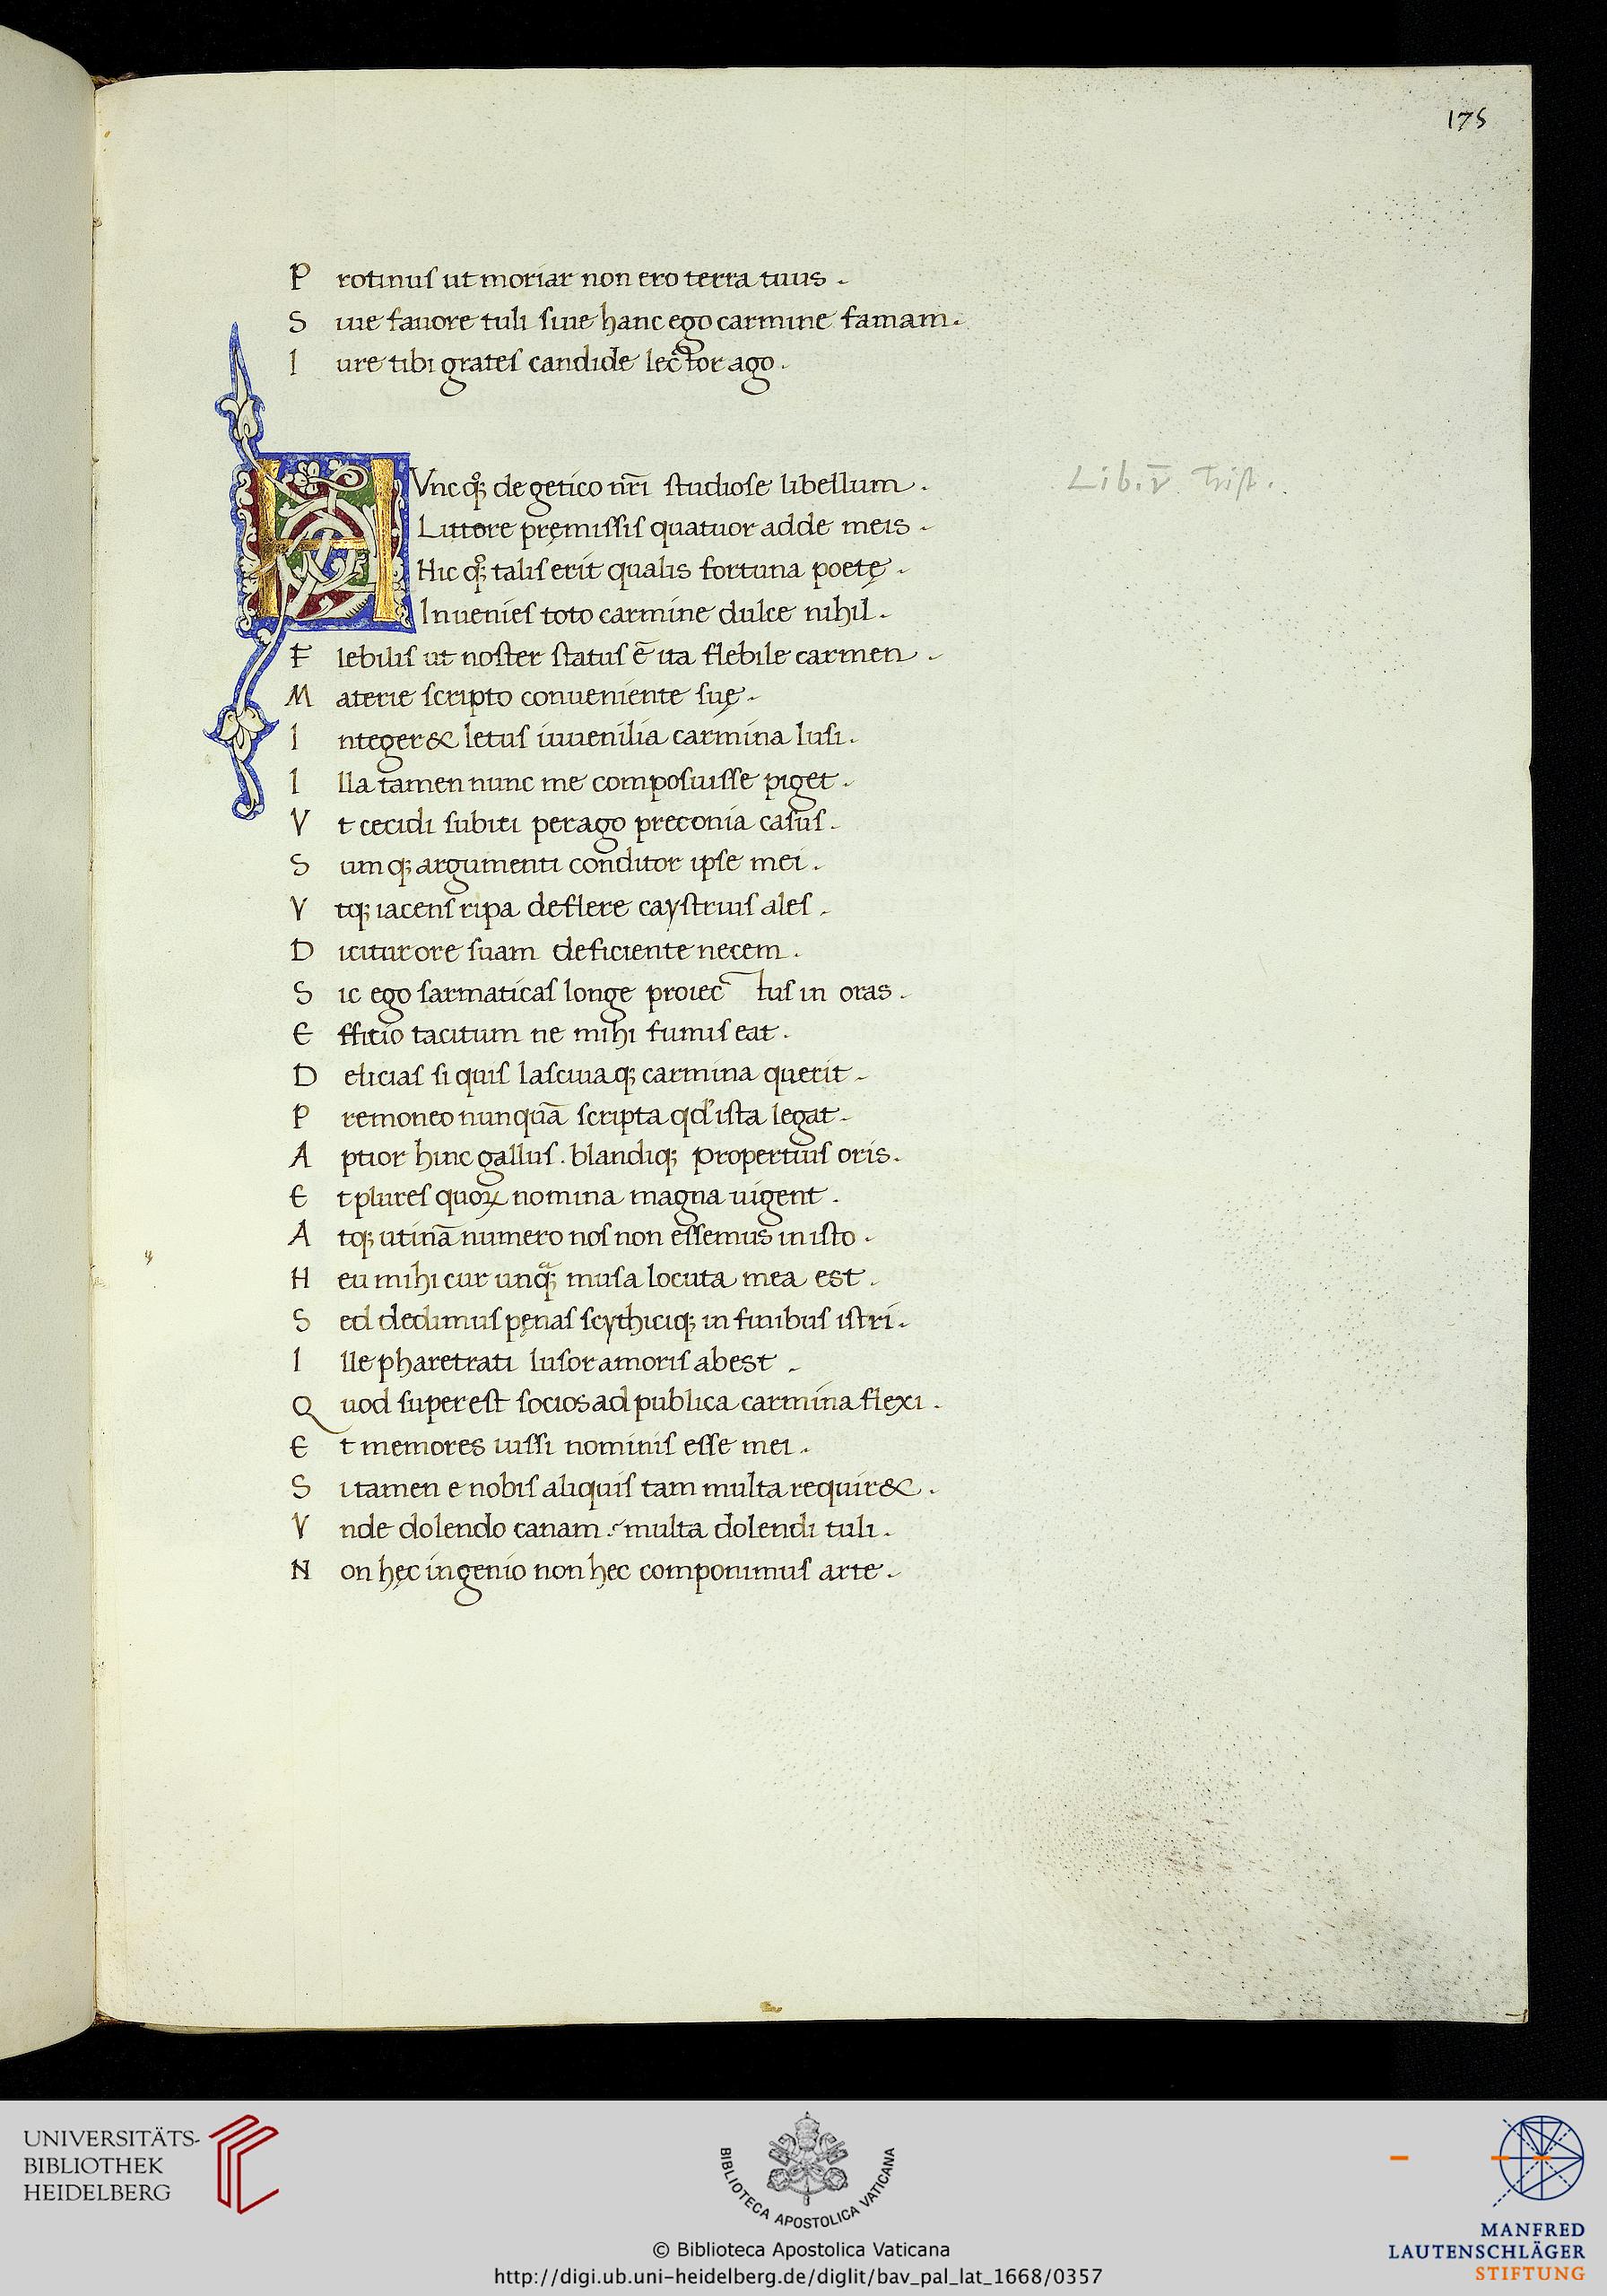 175
P rotinuſ ut moriar non ero terra tuus .
S iue fauore tuli ſiue hanc ego carmine famam .
I ure tibi grateſ candide lector ago .
HVnc qꝫ de getico nr̄i ſtudioſe libellum .
Lib. v̄ Triſt.
Littore pręmiſſiſ quatuor adde meis .
Hic qꝫ taliſ erit qualis fortuna poetę .
Inuenieſ toto carmine dulce nihil .
F lebiliſ ut noſter ſtatuſ ē ita flebile carmen .
M aterie ſcripto conueniente ſuę .
I nteger & letuſ iuuenilia carmina luſi .
I lla tamen nunc me compoſuiſſe piget .
V t cecidi ſubiti perago preconia caſuſ .
S um qꝫ argumenti conditor ipſe mei .
V tqꝫ iacenſ ripa deflere cayſtriuſ aleſ .
D icitur ore ſuam deficiente necem .
S ic ego ſarmaticaſ longe proiectuſ in oras .
E fficio tacitum ne mihi funuſ eat .
D eliciaſ ſi quiſ laſciuaqꝫ carmina querit .
P remoneo nunquā ſcripta qd' iſta legat .
A ptior hinc galluſ . blandiqꝫ propertiuſ oris .
E t plureſ quoꝝ nomina magna uigent .
A tqꝫ utinā numero noſ non eſſemus in iſto .
H eu mihi cur unqꝫᵃ muſa locuta mea est .
S ed dedimuſ pęnaſ ſcythiciqꝫ in finibuſ iſtri .
I lle pharetrati luſor amoriſ abest .
Q uod ſupereſt ſocios ad publica carmina flexi .
E t memores iuſſi nominiſ eſſe mei .
S i tamen e nobiſ aliquiſ tam multa requir& .
V nde dolendo canam . multa dolendi tuli .
N on hęc ingenio non hęc componimuſ arte .
UNIVERSITÄTS-
BIBLIOTHEK
HEIDELBERG
BIBLIOTECA APOSTOLICA VATICANA
© Biblioteca Apostolica Vaticana
http://digi.ub.uni-heidelberg.de/diglit/bav_pal_lat_1668/0357
MANFRED
LAUTENSCHLÄGER
STIFTUNG